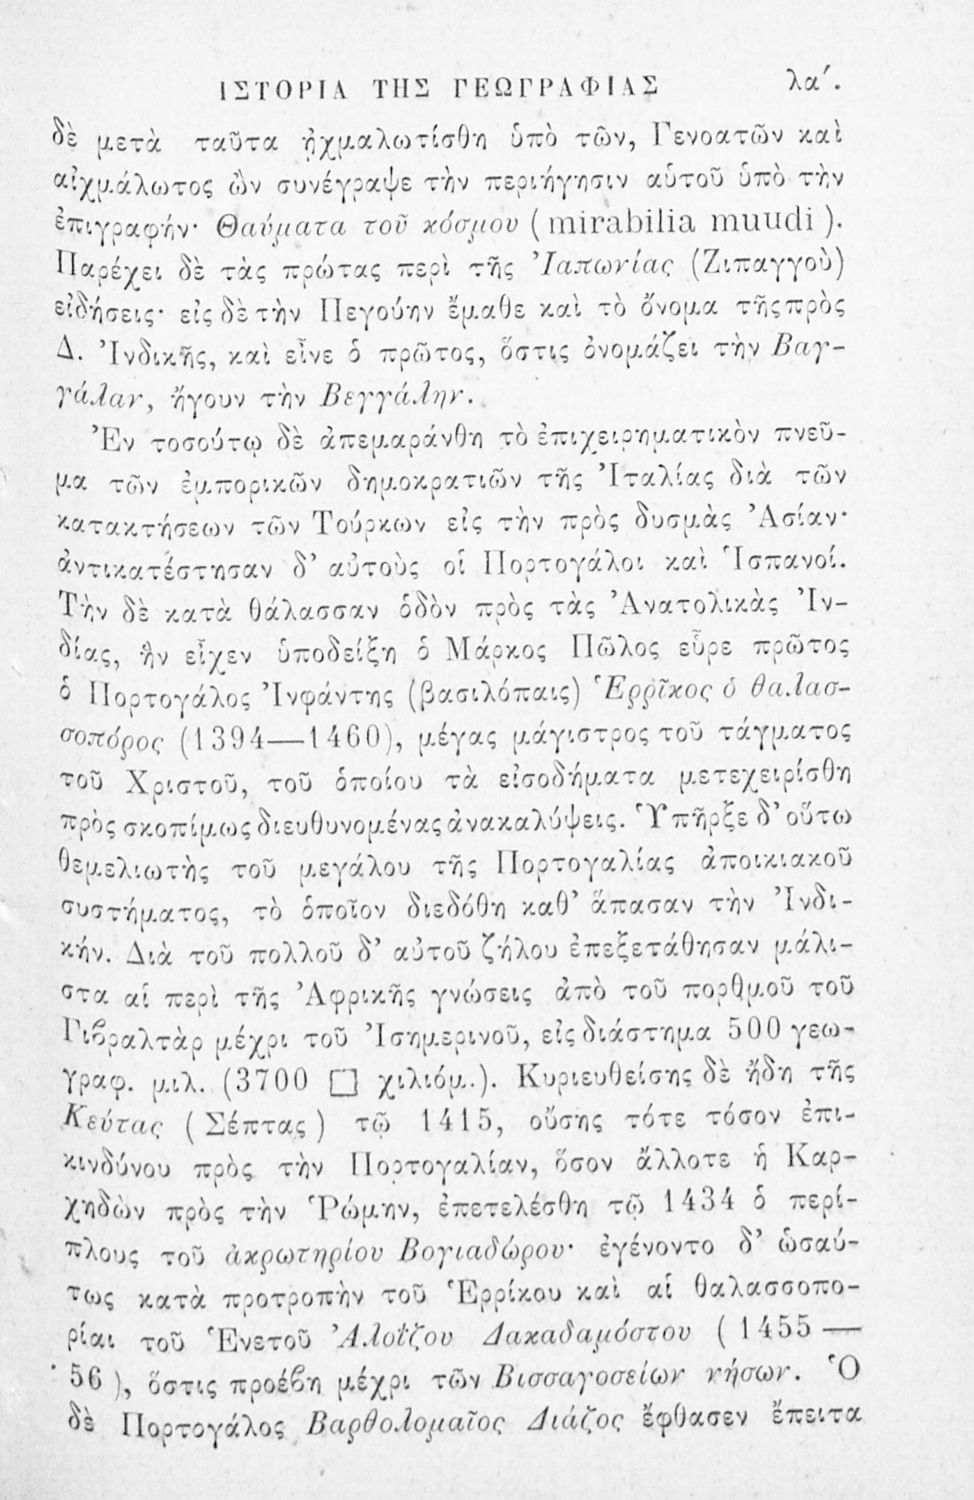 ΙΣΤΟΡΙΑ ΤΗΣ ΓΕΩΓΡΑΦΙΑΣ λα΄.
δὲ μετὰ ταῦτα ᾐχμαλωτίσθη ὑπὸ τῶν, Γενοατῶν καὶ
αἰχμάλωτος ὢν συνέγραψε τὴν περιήγησιν αὑτοῦ ὑπὸ τὴν
ἐπιγραφήν· Θαύματα τοῦ κόσμου (mirabilia muudi).
Παρέχει δὲ τὰς πρώτας περὶ τῆς Ἰαπωνίας (Ζιπαγγοὺ)
εἰδήσεις· εἰς δὲ τὴν Πεγούην ἔμαθε καὶ τὸ ὄνομα τῆς πρὸς
Δ. Ἰνδικῆς, καὶ εἶνε ὁ πρῶτος, ὅστις ὀνομάζει τὴν Βαγ-
γάλαν, ἤγουν τὴν Βεγγάλην.
Ἐν τοσούτῳ δὲ ἀπεμαράνθη τὸ ἐπιχειρηματικὸν πνεῦ-
μα τῶν ἐμπορικῶν δημοκρατιῶν τῆς Ἰταλίας διὰ τῶν
κατακτήσεων τῶν Τούρκων εἰς τὴν πρὸς δυσμὰς Ἀσίαν·
ἀντικατέστησαν δ' αὐτοὺς οἱ Πορτογάλοι καὶ Ἱσπανοί.
Τὴν δὲ κατὰ θάλασσαν ὁδὸν πρὸς τὰς Ἀνατολικὰς Ἰν-
δίας, ἣν εἶχεν ὑποδείξῃ ὁ Μάρκος Πῶλος εὗρε πρῶτος
ὁ Πορτογάλος Ἰνφάντης (βασιλόπαις) Ἑρρῖκος ὁ θαλασ-
σοπόρος (1394—1460), μέγας μάγιστρος τοῦ τάγματος
τοῦ Χριστοῦ, τοῦ ὁποίου τὰ εἰσοδήματα μετεχειρίσθη
πρὸς σκοπίμως διευθυνομένας ἀνακαλύψεις. Ὑπῆρξε δ' οὕτω
θεμελιωτὴς τοῦ μεγάλου τῆς Πορτογαλίας ἀποικιακοῦ
συστήματος, τὸ ὁποῖον διεδόθη καθ' ἅπασαν τὴν Ἰνδι-
κήν. Διὰ τοῦ πολλοῦ δ' αὐτοῦ ζήλου ἐπεξετάθησαν μάλι-
στα αἱ περὶ τῆς Ἀφρικῆς γνώσεις ἀπὸ τοῦ πορθμοῦ τοῦ
Γιβραλτὰρ μέχρι τοῦ Ἰσημερινοῦ, εἰς διάστημα 500 γεω-
γραφ. μιλ. (3700 □ χιλιόμ.). Κυριευθείσης δὲ ἤδη τῆς
Κεύτας (Σέπτας) τῷ 1415, οὔσης τότε τόσον ἐπι-
κινδύνου πρὸς τὴν Πορτογαλίαν, ὅσον ἄλλοτε ἡ Καρ-
χηδὼν πρὸς τὴν Ῥώμην, ἐπετελέσθη τῷ 1434 ὁ περί-
πλους τοῦ ἀκρωτηρίου Βογιαδώρου· ἐγένοντο δ' ὡσαύ-
τως κατὰ προτροπὴν τοῦ Ἑρρίκου καὶ αἱ θαλασσοπο-
ρίαι τοῦ Ἑνετοῦ Ἀλοΐζου Δακαδαμόστου (1455—
56), ὅστις προέβη μέχρι τῶν Βισσαγοσείων νήσων. Ὁ
δὲ Πορτογάλος Βαρθολομαῖος Διάζος ἔφθασεν ἔπειτα